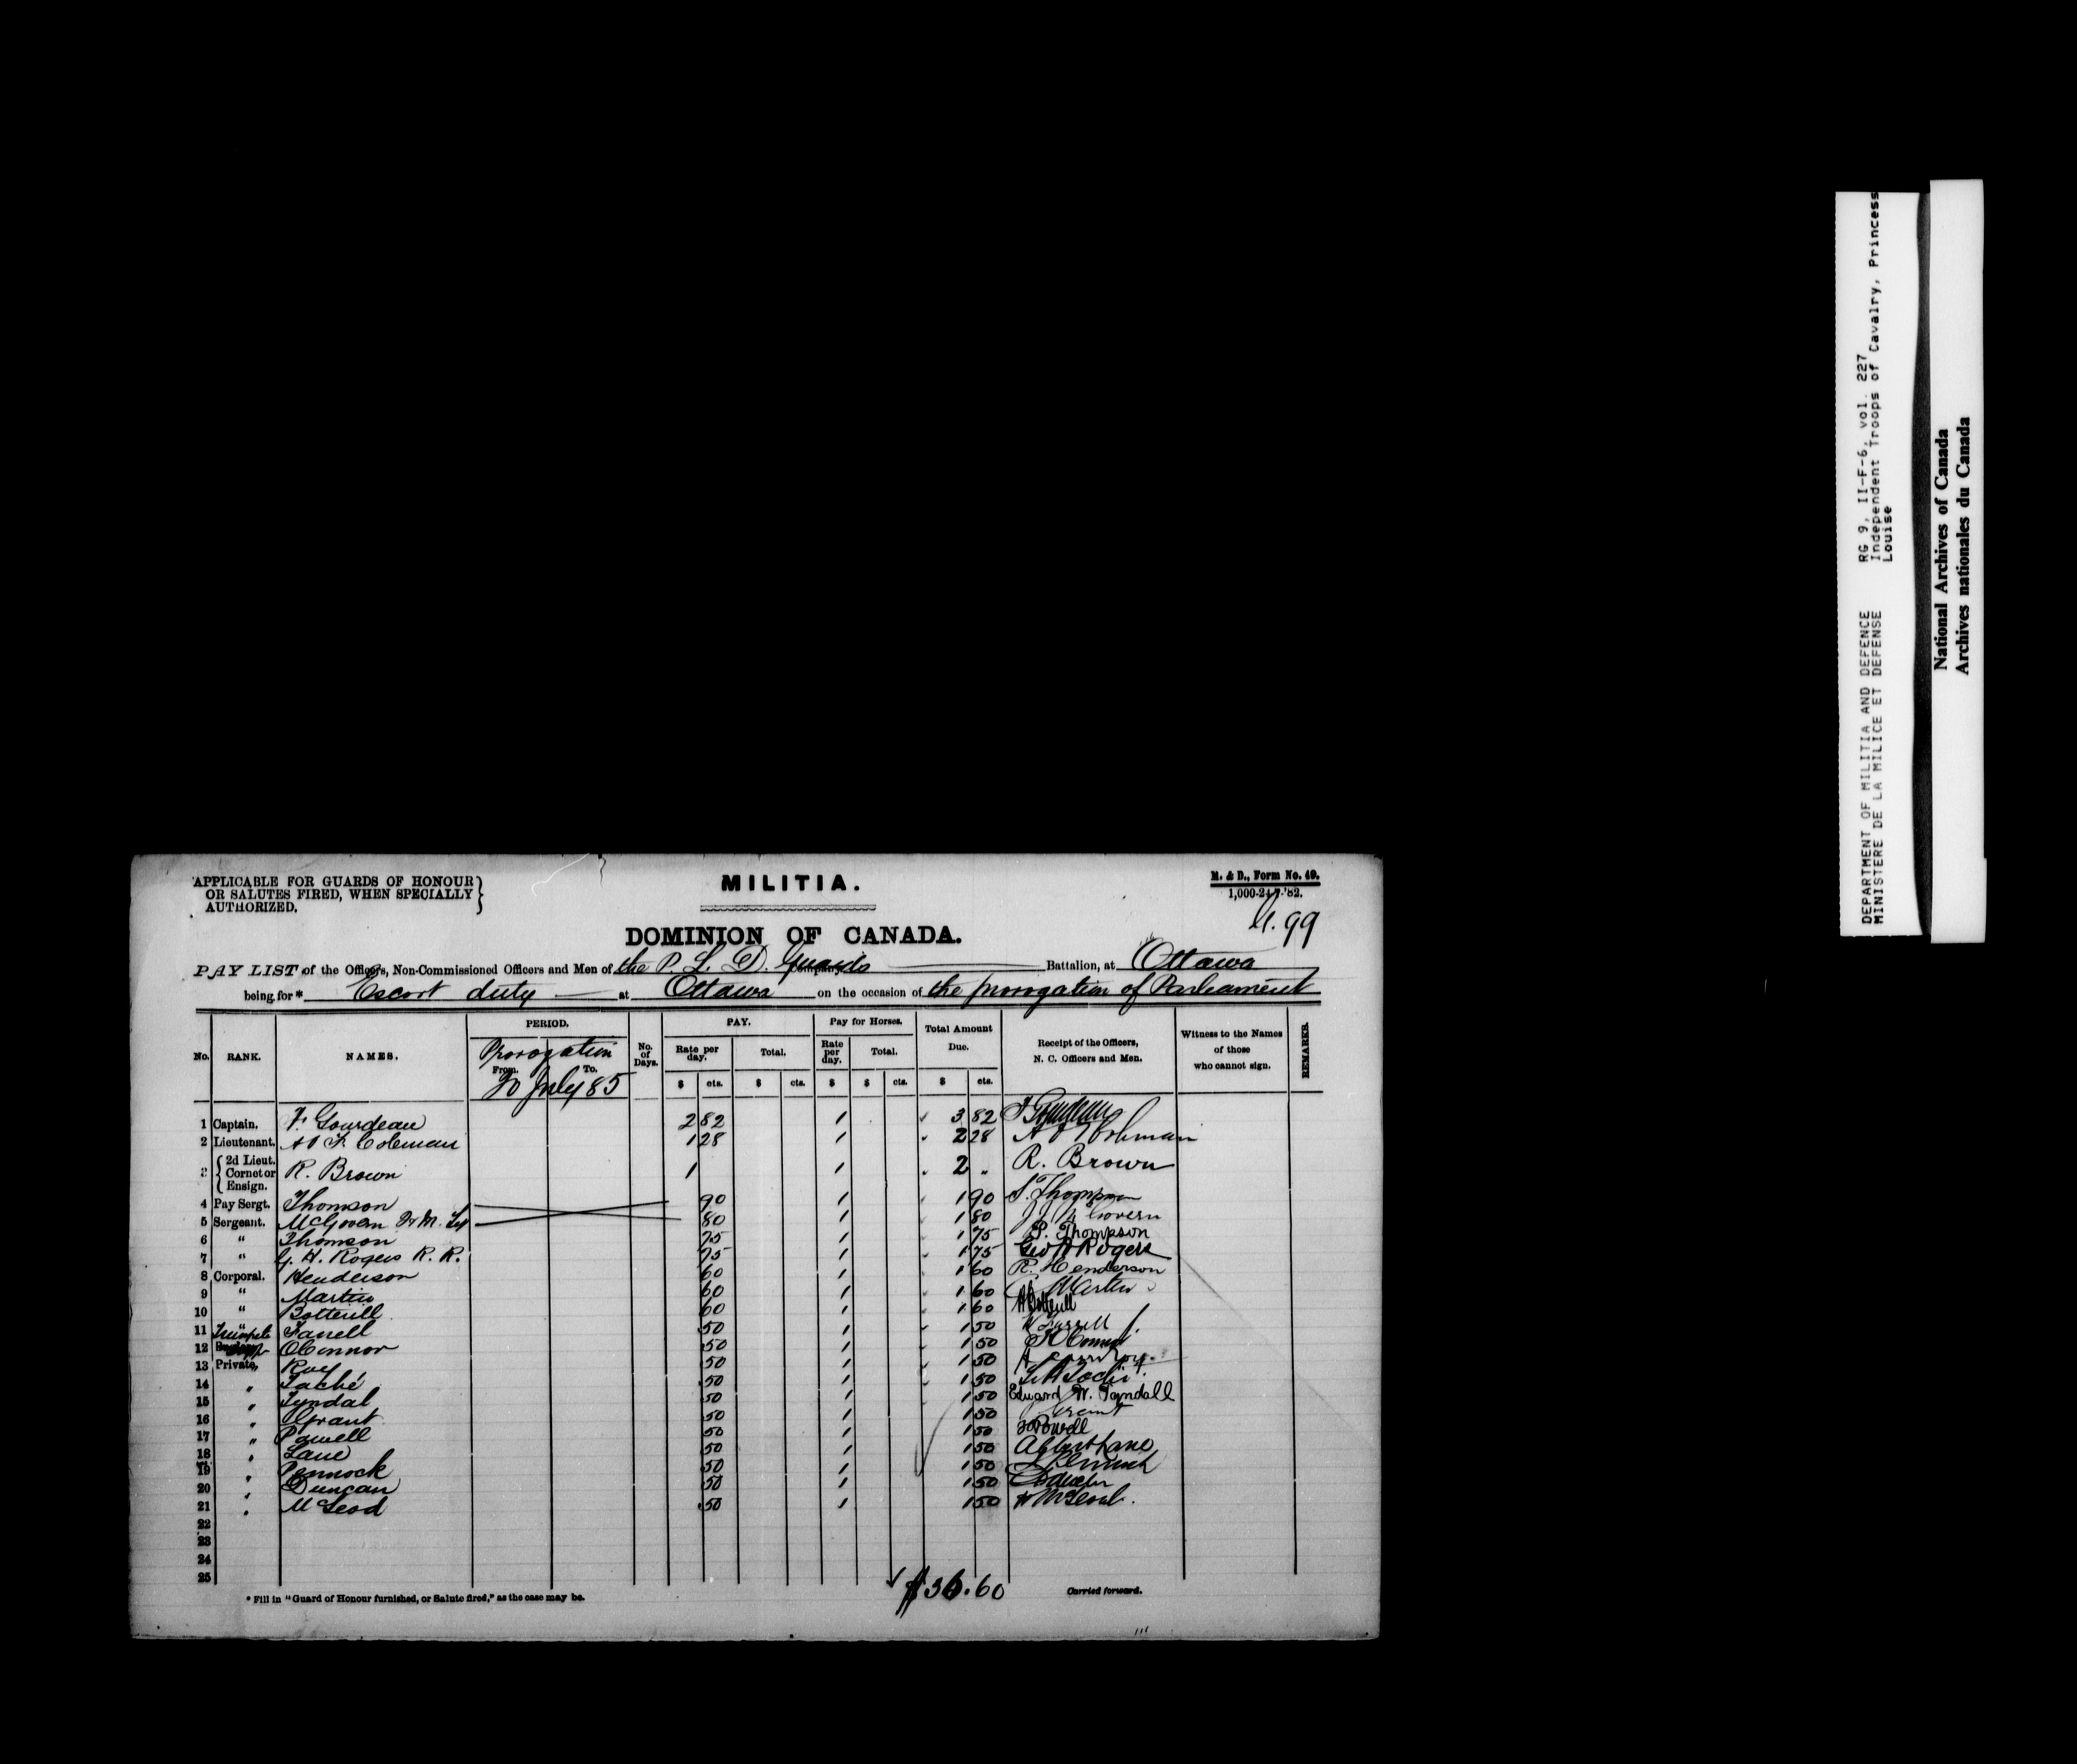 APPLICABLE FOR GUARDS OF HONOUR
OR SALUTES FIRED, WHEN SPECIALLY
AUTHORIZED.
MILITIA.
M. & D., Form No. 49.
1,000-24-7-'82.
99
DOMINION OF CANADA.
PAY LIST of the Officers, Non-Commissioned Officers and Men of the P. L. D. Guards Company Battalion, at Ottawa
being for* Escort duty — at Ottawa on the occasion of the prorogation of Parliament
No. RANK. NAMES. PERIOD. No. of Days. PAY. Pay for Horses. Total Amount Due. Receipt of the Officers, N. C. Officers and Men. Witness to the Names of those who cannot sign. REMARKS.
Prorogation From. To. Rate per day. Total. Rate per day. Total.
20 July 85 $ cts. $ cts. $ $ cts. $ cts.
1 Captain. F. Gourdeau 2 82 1 3 82 F Gourdeau
2 Lieutenant. A F. Coleman 1 28 1 2 28 Coleman
3 2d Lieut. Cornet or Ensign. R. Brown 1 1 2 " R. Brown
4 Pay Sergt. Thomson 90 1 1 90 S. Thompson
5 Sergeant. McGovern 80 1 1 80 McGovern
6 " Thomson 75 1 1 75 P. Thompson
7 " G. H. Rogers R. R. 75 1 1 75 Geo H Rogers
8 Corporal. Henderson 60 1 1 60 R. Henderson
9 " Martin 60 1 1 60 Martin
10 " Botterill 60 1 1 60 Botterill
11 " Farrell 50 1 1 50 W Farrell
12 O'Connor 50 1 1 50 O'Connor
13 Private, Roy 50 1 1 50 Roy
14 " Taché 50 1 1 50 Taché
15 " Tyndal 50 1 1 50 Edward W. Tyndall
16 " Grant 50 1 1 50 Grant
17 " Powell 50 1 1 50 Powell
18 " Lane 50 1 1 50 Albert Lane
19 " Pennock 50 1 1 50 Pennock
20 " Duncan 50 1 1 50
21 " McLeod 50 1 1 50 McLeod.
22
23
24
25
$36.60
* Fill in "Guard of Honour furnished, or Salute fired," as the case may be.
Carried forward.
DEPARTMENT OF MILITIA AND DEFENCE RG 9, II-F-6, vol. 227
MINISTERE DE LA MILICE ET DEFENSE Independent Troops of Cavalry, Princess
Louise
National Archives of Canada
Archives nationales du Canada